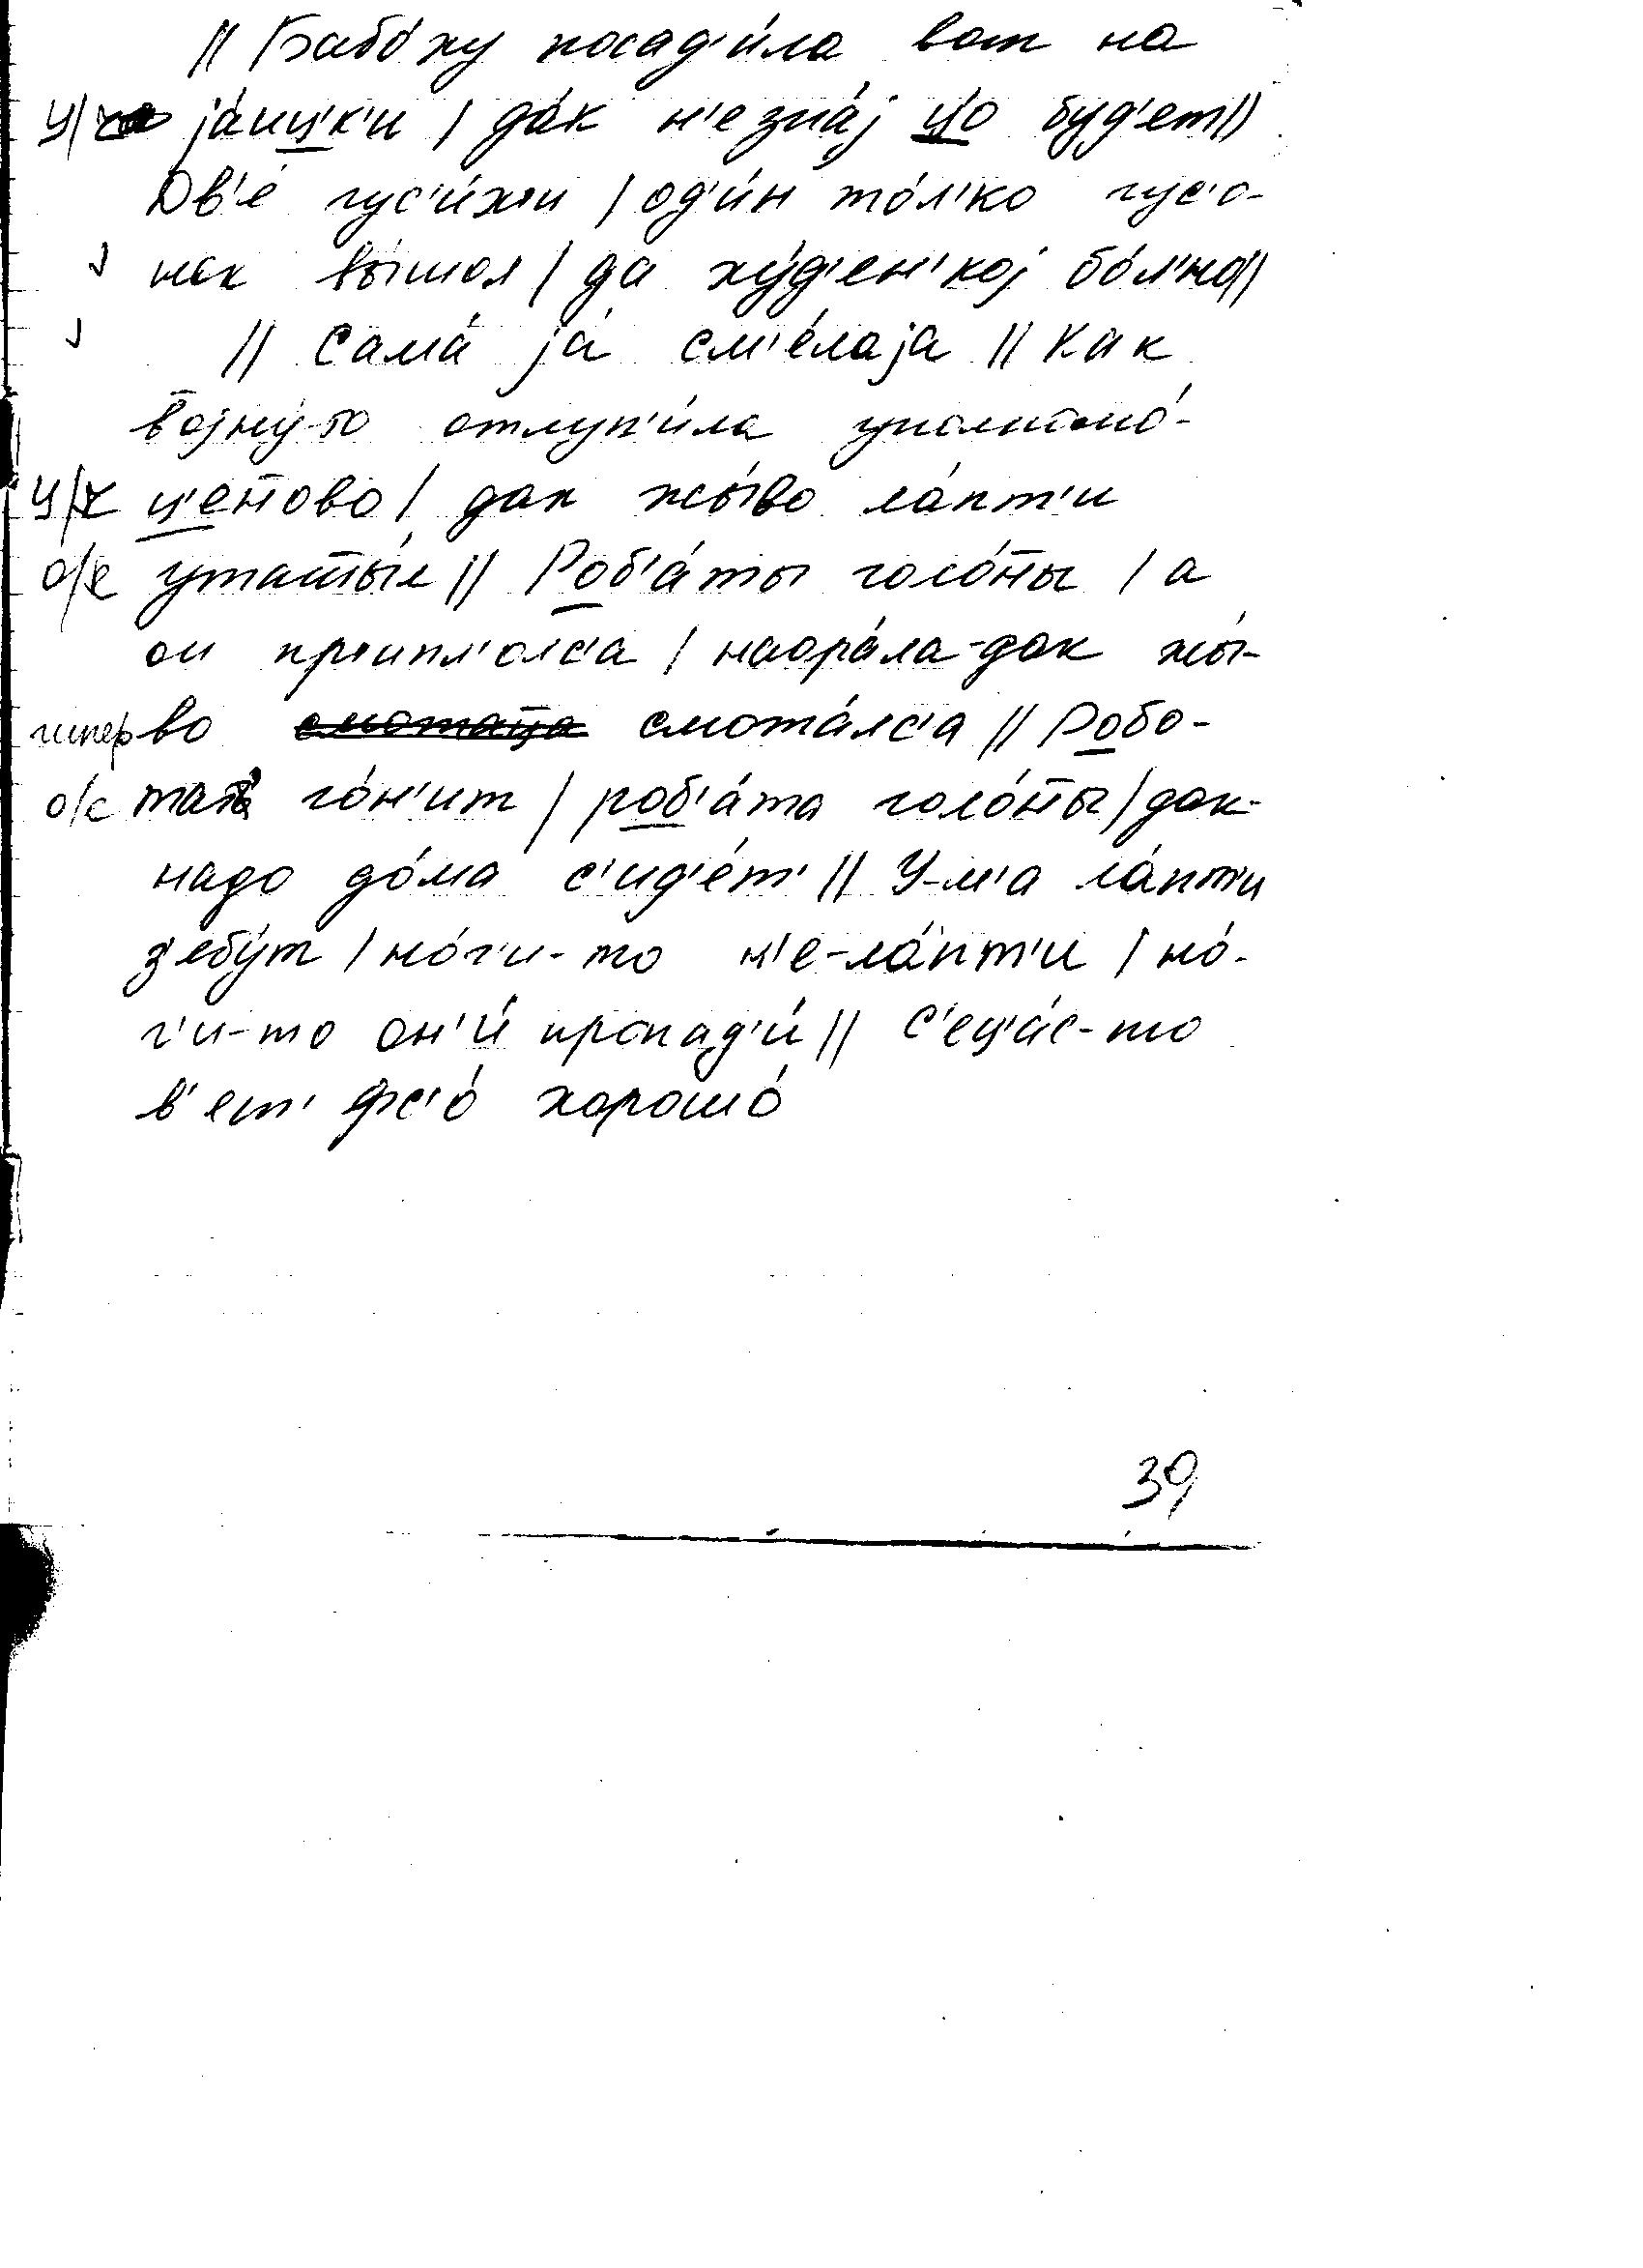 || Бабо́ху посад'и́ла вот на
ц/ч ја́иц'к'и | да́к н'е зна́ј цо буд'ет ||
Дв'е́ гус'и́хи | од'и́н то́л'ко гус'о-
нок вы́шол | да ху́д'ен'кој бо́л'но ||
|| Сама́ ја́ см'е́лаја || Как
војну́-то отлуп'и́ла уполномо́-
ц/ч ц'еново | дак жы́во ла́пт'и
о/е утащы́л || Роб'а́ты голо́ны | а
он припл'о́лс'а | наора́ла-дак жы́-
гипер во смота́лс'а || Робо-
о/а тат' го́н'ит | роб'а́та голо́ны | дак-
надо до́ма с'ид'е́т' || У-м'а ла́пт'и
з'ебу́т | но́г'и-то н'е-ла́пт'и | но́-
г'и-то он'и́ пропад'и́ || С'ец'а́с-то
в'ет' фс'о́ хорошо́
39